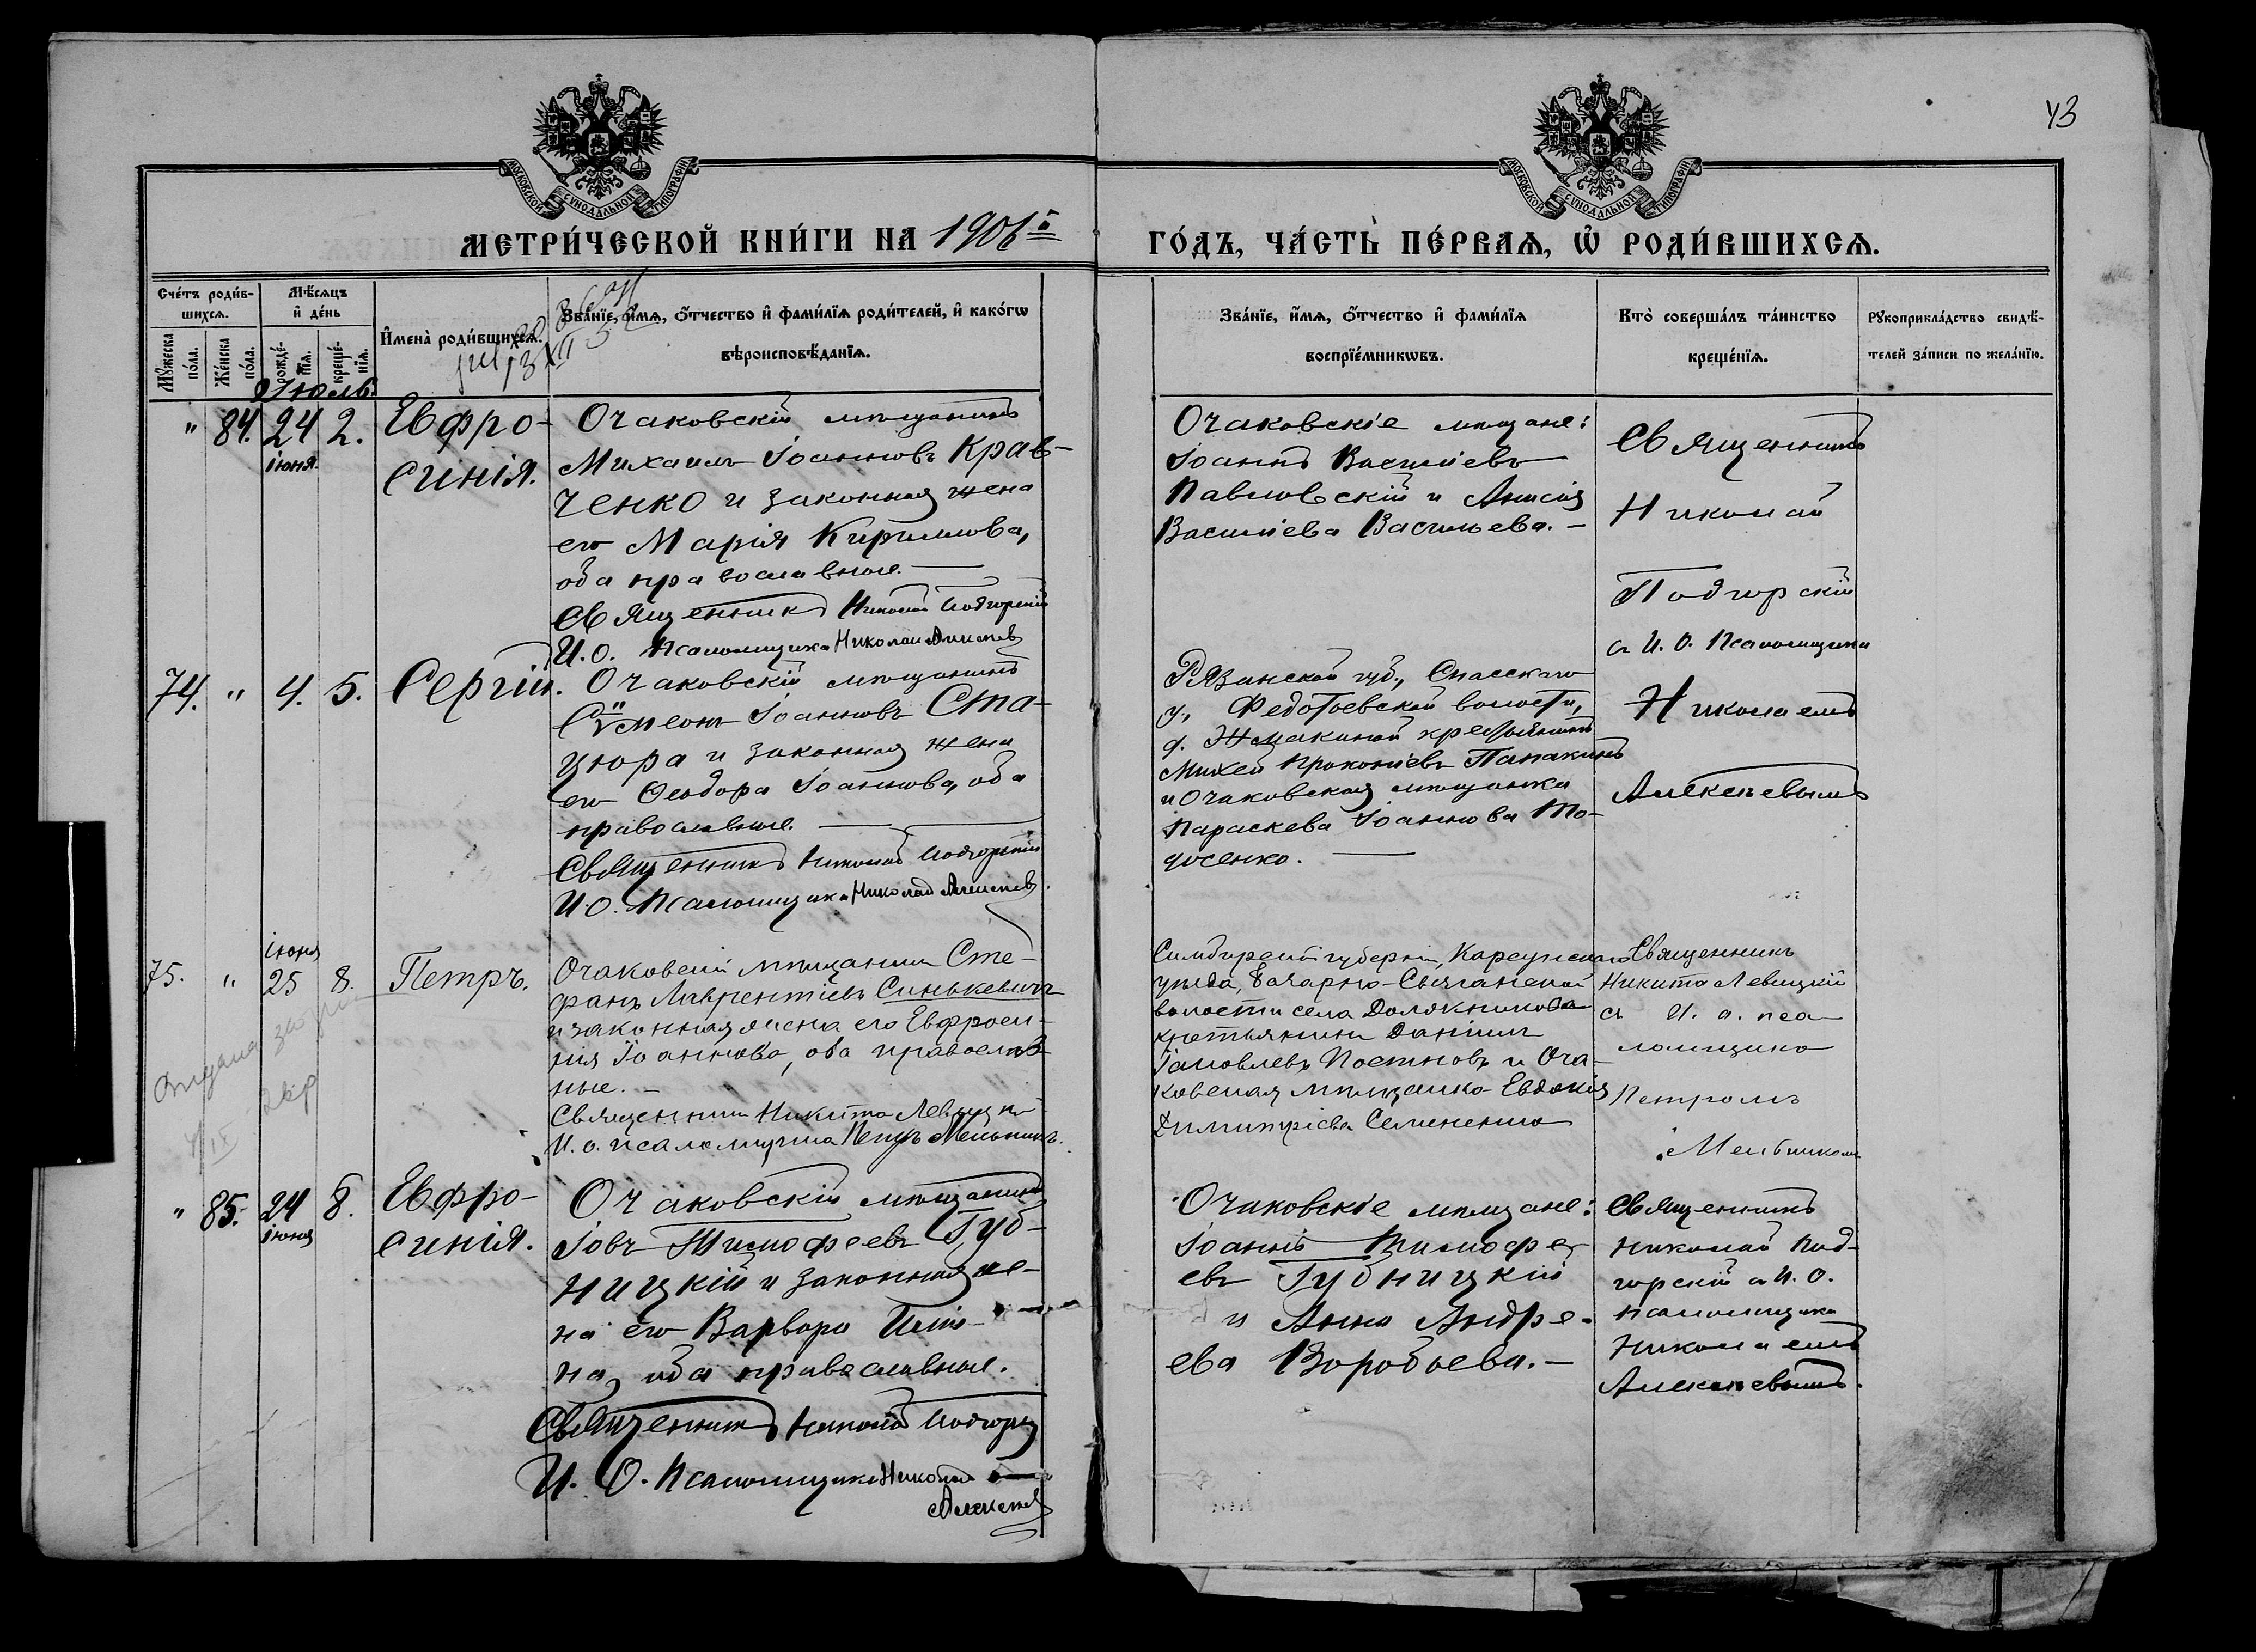 43
МОСКОВСКОЙ СѴНОДАЛЬНОЙ ТИПОГРАФІИ
МОСКОВСКОЙ СѴНОДАЛЬНОЙ ТИПОГРАФІИ
МЕТРИ́ЧЕСКОЙ КНИ́ГИ НА 1906й
ГО́ДЪ, ЧА́СТЬ ПЕ́РВАѦ, Ѡ҆ РОДИ́ВШИХСѦ.
Сче́тъ роди́в-
шихсѧ.
Мꙋ́жеска
по́ла.
Же́нска
по́ла.
Мѣ́сѧцъ
и҆ де́нь
рожде́-
нїѧ.
креще́-
нїѧ.
И҆мена̀ роди́вшихсѧ.
Зва́нїе, и҆́мѧ, ѻ҆́тчество и҆ фами́лїѧ роди́телей, и҆ како́гѡ
вѣроисповѣ́данїѧ.
Зва́нїе, и҆́мѧ, ѻ҆́тчество и҆ фами́лїѧ
воспрїе́мникѡвъ.
Кто̀ соверша́лъ та́инство
креще́нїѧ.
Рꙋкоприкла́дство свидѣ́-
телей за́писи по жела́нїю.
Іюль.
" 84. 24 2.
іюня.
Евфро-
синія.
Очаковскій мѣщанинъ
Михаилъ Іоанновъ Крав-
ченко и законная жена
его Марія Кириллова,
оба православные.
Священникъ Николай Подгорскій
И. О. Псаломщика Николай Алексѣевъ
Очаковскіе мѣщане:
Іоаннъ Васильевъ
Павловскій и Анисія
Василіева Васильева.
Священникъ
Николай
Подгорскій
съ И. О. Псаломщика
Николаемъ
Алексѣевымъ
74. " 4. 5.
Сергій.
Очаковскій мѣщанинъ
Сѵмеонъ Іоанновъ Ста-
цюра и законная жена
его Ѳеодора Іоаннова, оба
православные.
Священникъ Николай Подгорскій
И. О. Псаломщика Николай Алексѣевъ.
Рязанской губ., Спасскаго
у., Федотьевской волости,
д. Жмакиной крестьянинъ
Михей Прокопіевъ Панакинъ
и Очаковская мѣщанка
Параскева Іоаннова То-
досенко.
75. " 25 8.
іюня
Петръ.
Очаковскій мѣщанинъ Сте-
фанъ Лаврентіевъ Синькевичъ
и законная жена его Евфроси-
нія Іоаннова, оба православ-
ные.
Священникъ Никита Левицкій
И. о. псаломщика Петръ Мельникъ.
Симбирской губерніи, Карсунскаго
уѣзда, волости села
крестьянинъ Даніилъ
Іаковлевъ Постновъ и Оча-
ковская мѣщанка Евдокія
Димитріева Семененко
Священникъ
Никита Левицкій
съ И. о. пса-
ломщика
Петромъ
Мельникомъ
" 85. 24 8.
іюня
Евфро-
синія.
Очаковскій мѣщанинъ
Іовъ Тимофеевъ Губ-
ницкій и законная же-
на его Варвара
на, оба православные.
Священникъ Николай Подгорскій
И. О. Псаломщика Николай
Алексѣевъ
Очаковскіе мѣщане:
Іоаннъ Тимофе-
евъ Губницкій
и Анна Андре-
ева Воробьева.
Священникъ
Николай Под-
горскій съ И. О.
псаломщика
Николаемъ
Алексѣевымъ.